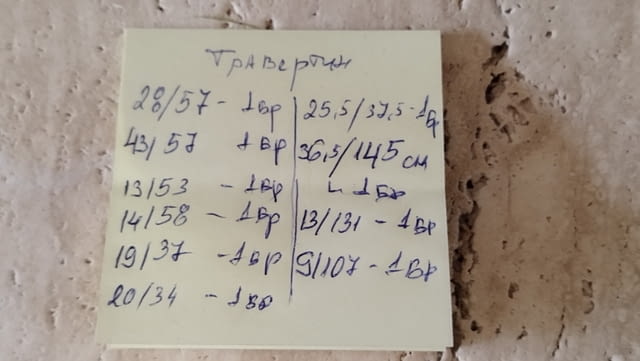 Травертин
28/57 - 1бр
43/57 1бр
13/53 - 1бр
14/58 - 1бр
19/37 - 1бр
20/34 - 1бр
25,5/37,5 - 1бр
36,5/145 см
- 1бр
13/131 - 1бр
9/107 - 1бр